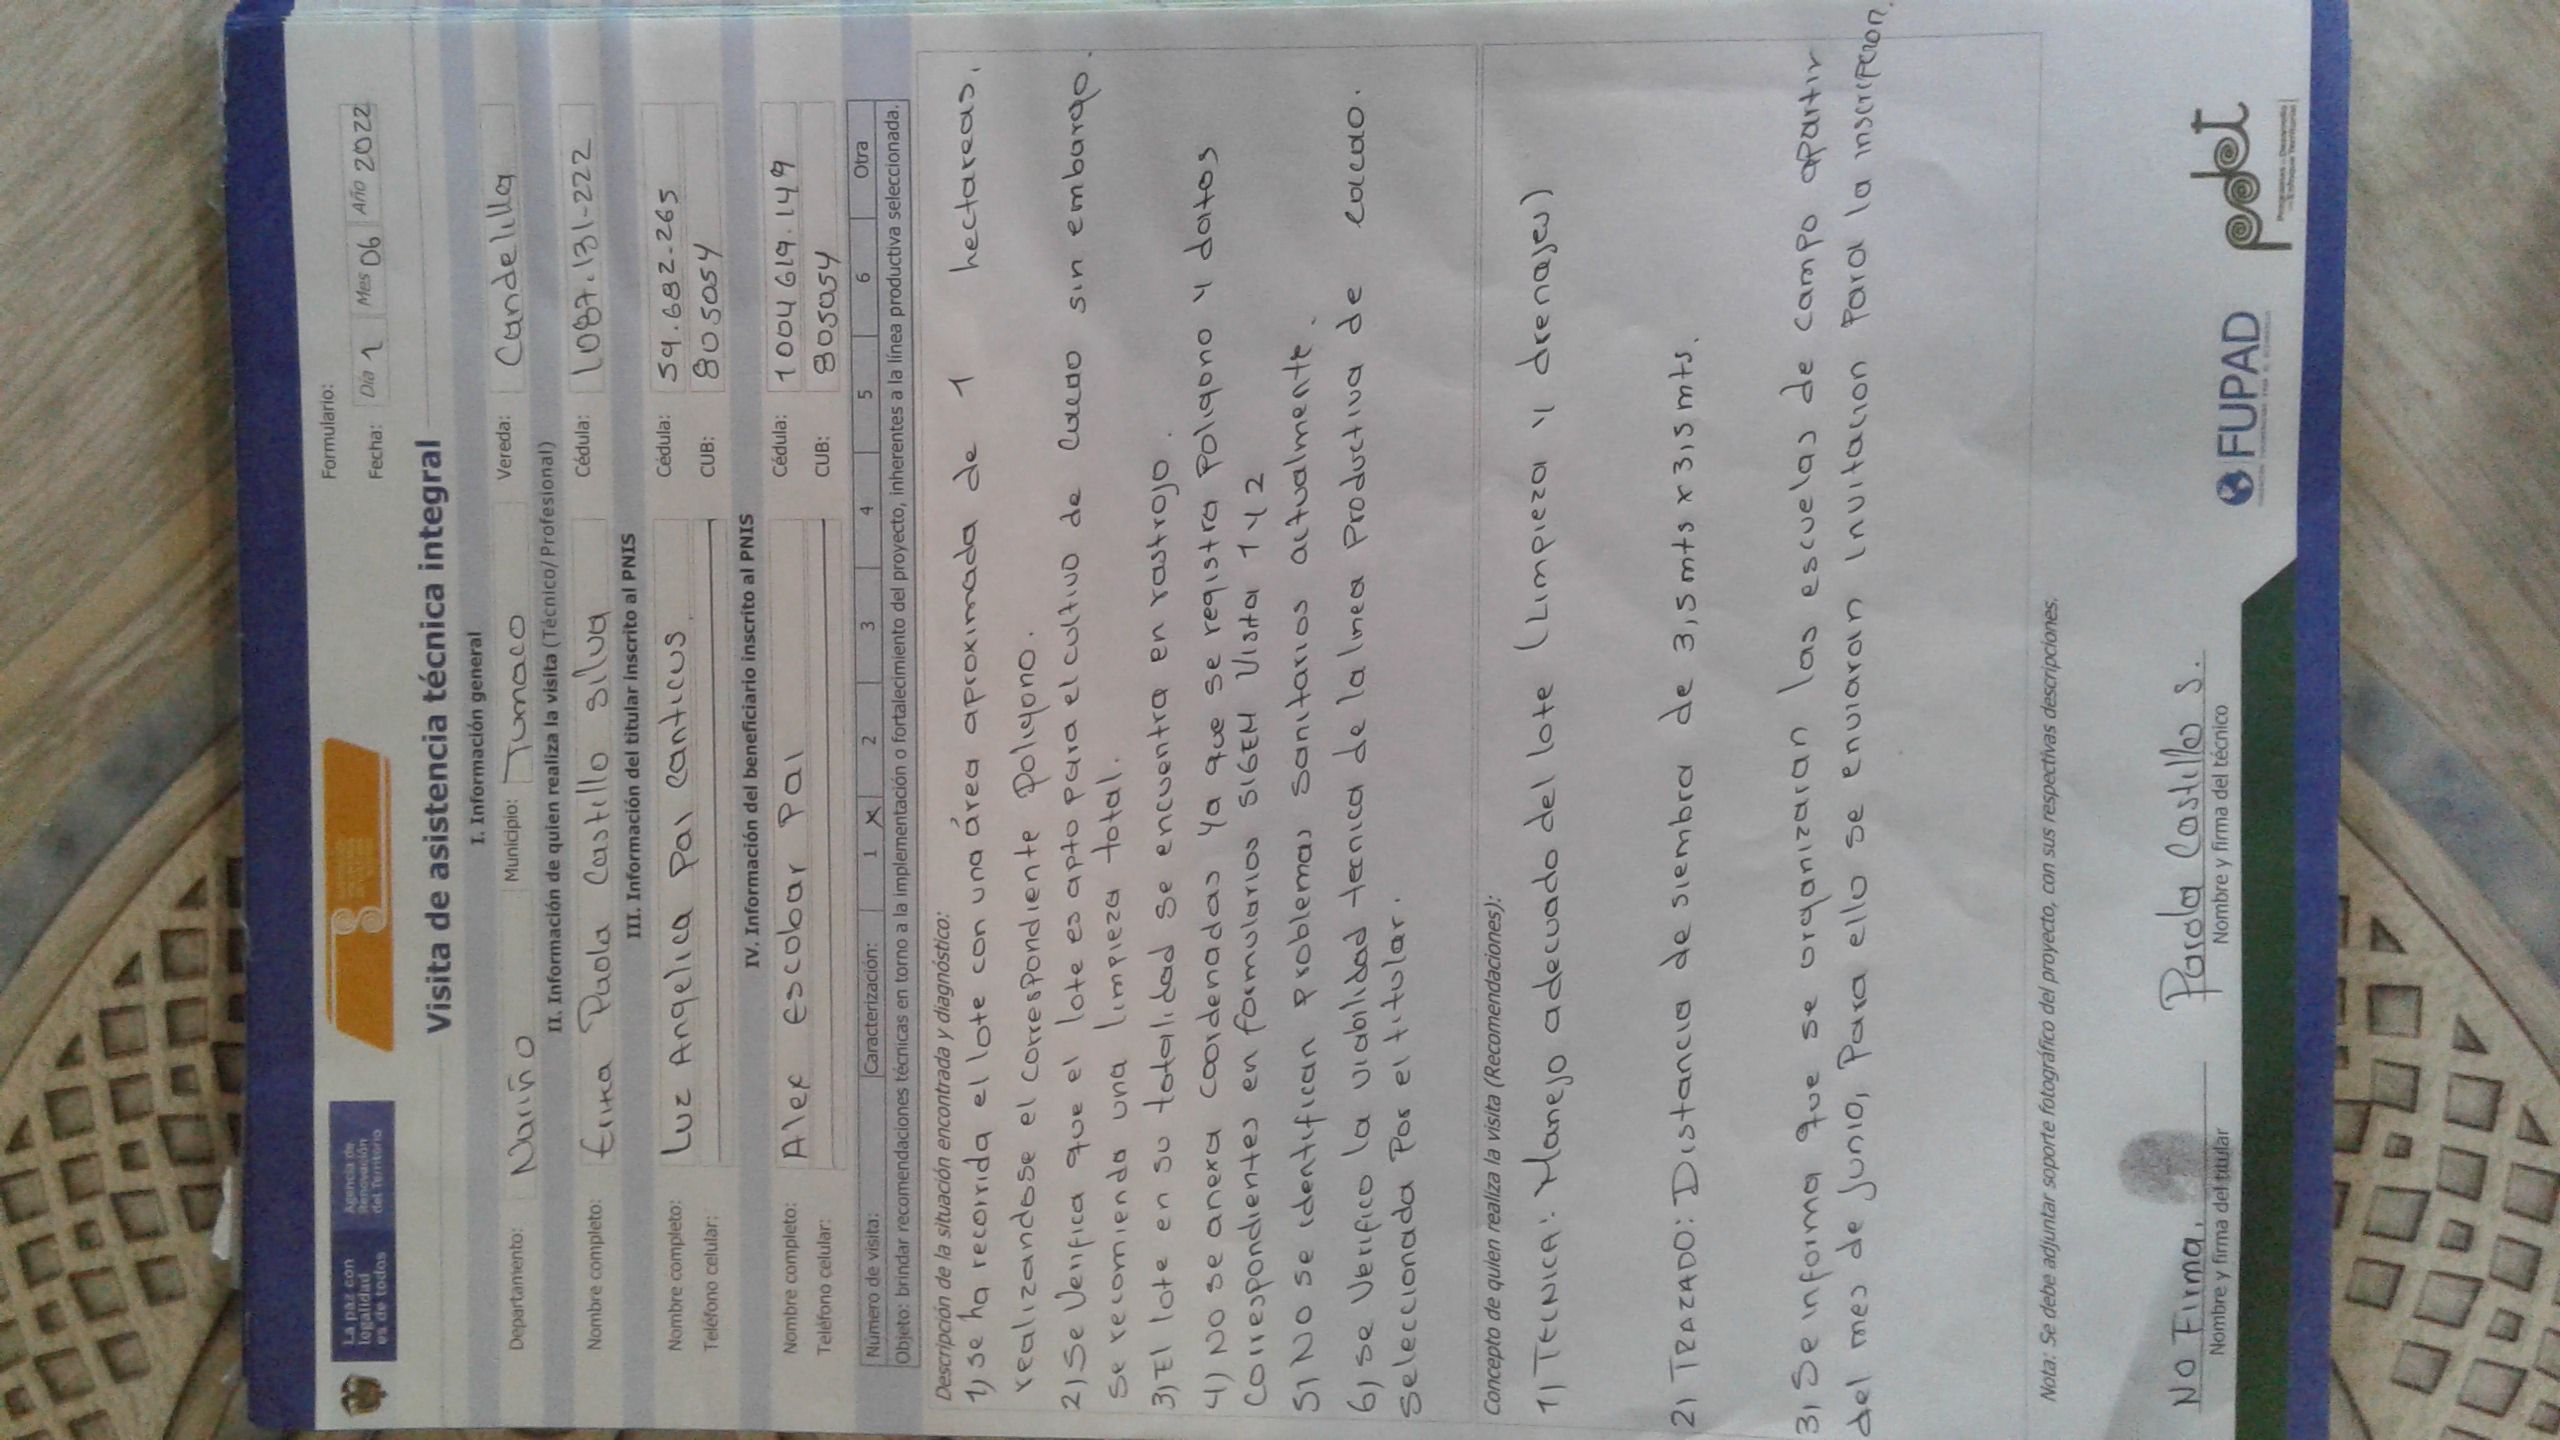 La paz con legalidad es de todos
Agencia de Renovación del Territorio
Formulario:
Fecha: Día 1 Mes 06 Año 2022
Visita de asistencia técnica integral
I. Información general
Departamento: Nariño Municipio: Tumaco Vereda: Candelilla
II. Información de quien realiza la visita (Técnico/ Profesional)
Nombre completo: Erika Paola Castillo silva Cédula: 1087.131-222
III. Información del titular inscrito al PNIS
Nombre completo: Luz Angelica Pai Canticus Cédula: 59.682.265
Teléfono celular: CUB: 805054
IV. Información del beneficiario inscrito al PNIS
Nombre completo: Alex Escobar Pai Cédula: 1004619.149
Teléfono celular: CUB: 805054
Número de visita: Caracterización: 1 X 2 3 4 5 6 Otra
Objeto: brindar recomendaciones técnicas en torno a la implementación o fortalecimiento del proyecto, inherentes a la línea productiva seleccionada.
Descripción de la situación encontrada y diagnóstico:
1) se ha recorrida el lote con una área aproximada de 1 hectareas,
realizandose el correspondiente Poligono.
2) Se Verifica que el lote es apto para el cultivo de cacao sin embargo.
se recomienda una limpieza total.
3) El lote en su totalidad se encuentra en rastrojo.
4) No se anexa coordenadas ya que se registra Poligono y datos
correspondientes en formularios SIGEM Visita 1 y 2
5) No se identifican problemas sanitarios actualmente.
6) se Verifico la viabilidad tecnica de la linea Productiva de cacao.
Seleccionada Por el titular.
Concepto de quien realiza la visita (Recomendaciones):
1) TECNICA: Manejo adecuado del lote (Limpieza y drenajes)
2) TRAZADO: Distancia de siembra de 3,5 mts x 3,5 mts.
3) Se informa que se organizaran las escuelas de campo apartir
del mes de Junio, Para ello se enviaran invitacion Para la inscripcion.
Nota: Se debe adjuntar soporte fotográfico del proyecto, con sus respectivas descripciones.
No Firma. Paola Castillo S.
Nombre y firma del titular Nombre y firma del técnico
FUPAD
pdet
Programas de Desarrollo con Enfoque Territorial